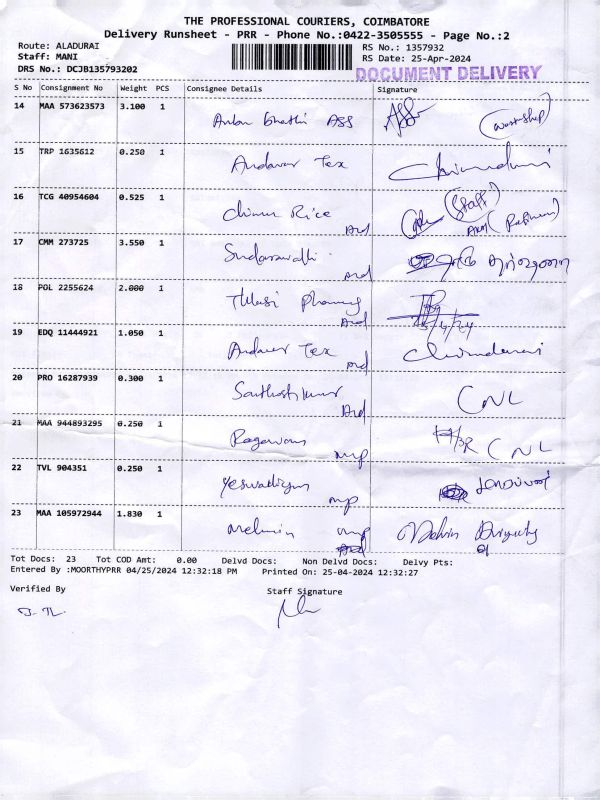 THE PROFESSIONAL COURIERS, COIMBATORE
Delivery Runsheet - PRR - Phone No.:0422-3505555 - Page No.:2
Route: ALADURAI
Staff: MANI
DRS No.: DCJB135793202
RS No.: 1357932
RS Date: 25-Apr-2024
DOCUMENT DELIVERY
S No Consignment No Weight PCS Consignee Details Signature
14 MAA 573623573 3.100 1 ASS
15 TRP 1635612 0.250 1 Andavar Tex
16 TCG 40954604 0.525 1 Rice (Staff)
17 CMM 273725 3.550 1
18 POL 2255624 2.000 1 Thulasi Pharmacy
19 EDQ 11444921 1.050 1 Andavar Tex
20 PRO 16287939 0.300 1 Santhoshkumar CNL
21 MAA 944893295 0.250 1 Ragavan mp CNL
22 TVL 904351 0.250 1 mp
23 MAA 105972944 1.830 1 Melvin Melvin
Tot Docs: 23 Tot COD Amt: 0.00 Delvd Docs: Non Delvd Docs: Delvy Pts:
Entered By :MOORTHYPRR 04/25/2024 12:32:18 PM Printed On: 25-04-2024 12:32:27
Verified By Staff Signature